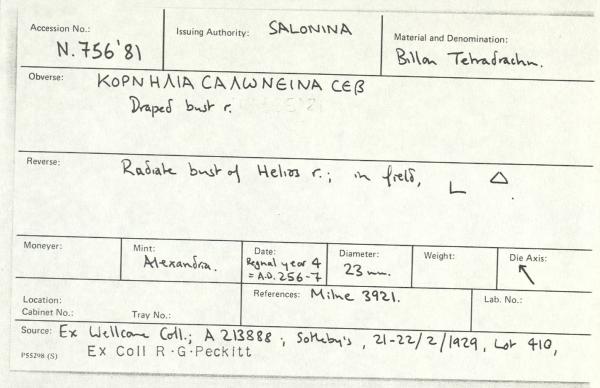 Accession No.: N.756'81
Issuing Authority: SALONINA
Material and Denomination: Billon Tetradrachm.
Obverse: ΚΟΡΝΗΛΙΑ ϹΑΛѠΝΕΙΝΑ ϹΕΒ
Draped bust r.
Reverse: Radiate bust of Helios r.; in field, L Δ.
Moneyer:
Mint: Alexandria.
Date: Regnal year 4 = A.D. 256-7
Diameter: 23 mm.
Weight:
Die Axis: ↖
Location:
Cabinet No.: Tray No.:
References: Milne 3921.
Lab. No.:
Source: Ex Wellcome Coll.; A 213888; Sotheby's, 21-22/2/1929, Lot 410,
P55298 (S) Ex Coll R·G·Peckitt